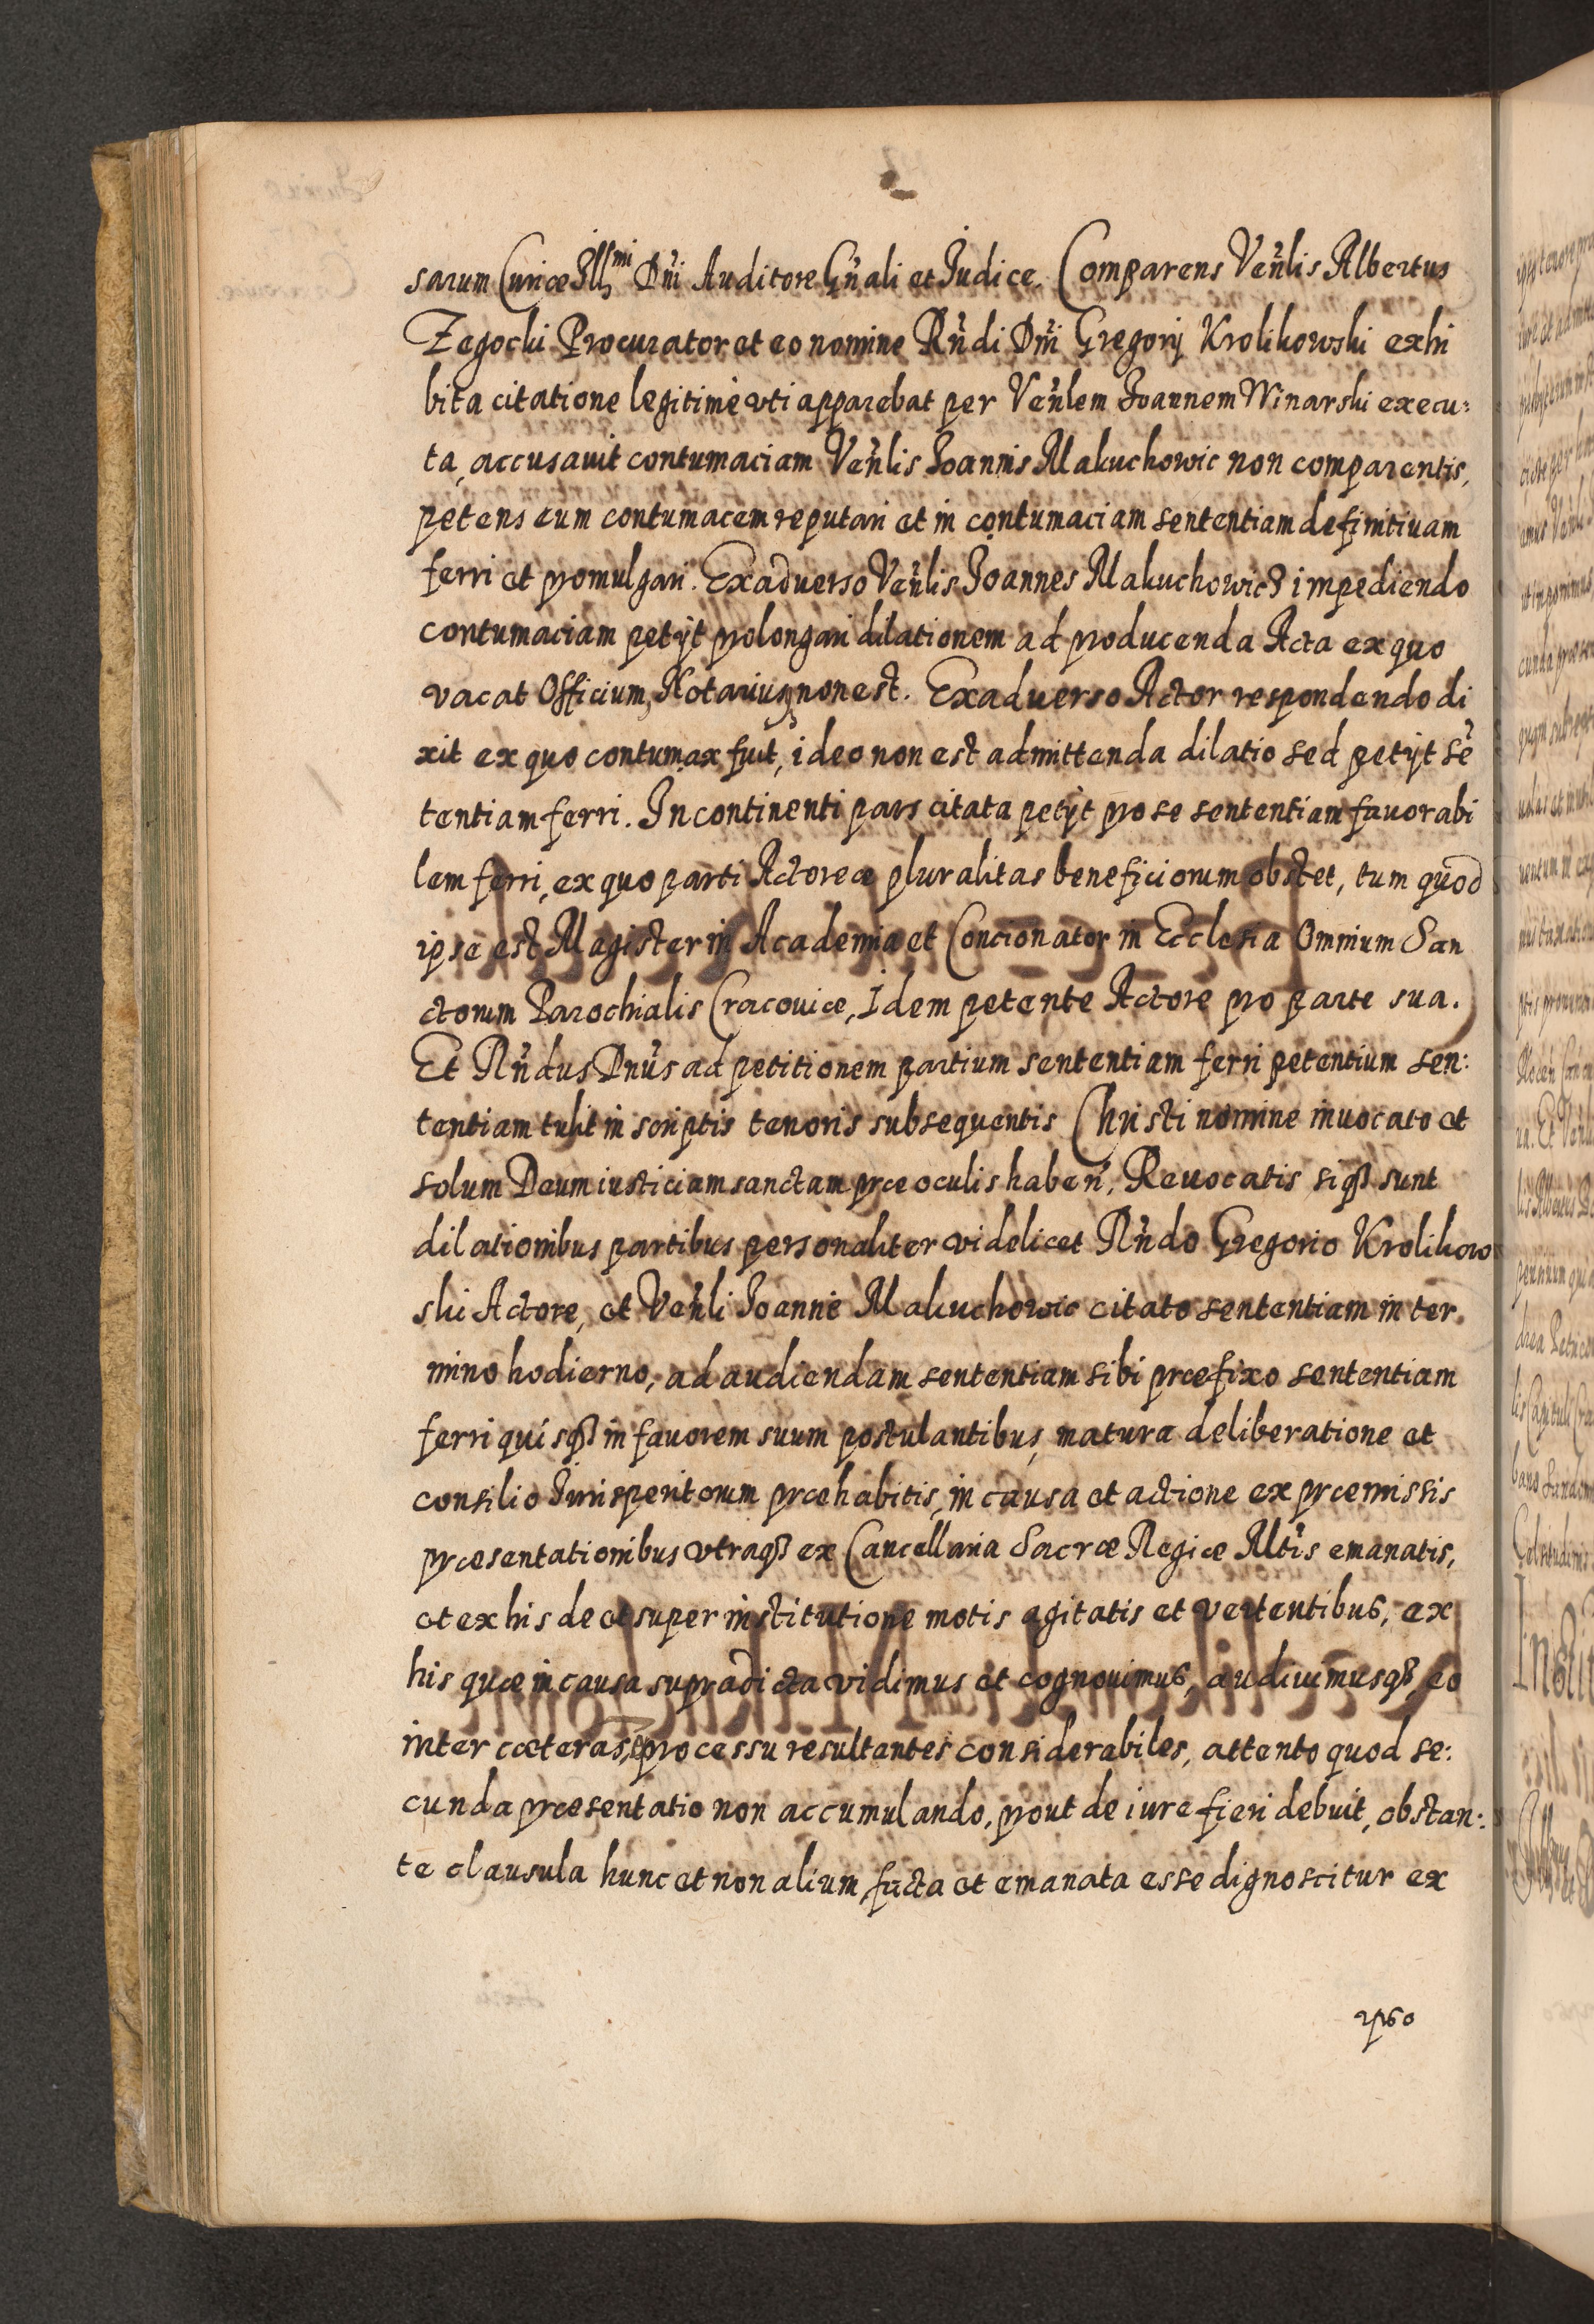 sarum Curiæ Illmi Dñi Auditore Gñali et Judice. Comparens Veñlis Albertus
Zegocki Procurator et eo nomine Rñdi Dñi Gregorij Krolikowski exhi
bita citatione legitimè vti apparebat per Veñlem Joannem Winarski execu:
ta, accusauit contumaciam Veñlis Joannis Makuchowic non comparentis,
petens eum contumacem reputari et in contumaciam sententiam definitiuam
ferri et promulgari. Exaduerso Veñlis Joannes Makuchowicz impediendo
contumaciam petijt prolongari dilationem ad producenda Acta ex quo
vacat Officium, Notariusq non est. Exaduerso Actor respondendo di
xit ex quo contumax fuit, ideo non est admittenda dilatio sed petijt sẽ
tentiam ferri. In continenti pars citata petijt pro se sententiam fauorabi
lem ferri, ex quo parti Actoreæ pluralitas beneficiorum obstet, tum quod
ipse est Magister in Academia et Concionator in Ecclesia Omnium San
ctorum Parochialis Cracouiæ, Idem petente Actore pro parte sua.
Et Rñdus Dnũs ad petitionem partium sententiam ferri petentium sen:
tentiam tulit in scriptis tenoris subsequentis Christi nomine inuocato et
solum Deum iusticiam sanctam præ oculis habeñ, Reuocatis siqß sunt
dilationibus partibus personaliter videlicet Rñdo Gregorio Krolikow
ski Actore, et Veñli Joanne Makuchowic citato sententiam in ter
mino hodierno, ad audiendam sententiam sibi præfixo sententiam
ferri quisqß in fauorem suum postulantibus, matura deliberatione et
consilio Jurisperitorum præhabitis, in causa et actione ex præmissis
præsentationibus vtraqß ex Cancellaria Sacræ Regiæ Mtis emanatis,
et ex his de et super institutione motis agitatis et vertentibus, ex
his quæ in causa supradicta vidimus et cognouimus, audiuimusqß, eo
inter cæteras, processu resultantes considerabiles, attento quod se:
cunda præsentatio non accumulando, prout de iure fieri debuit, obstan:
te clausula hunc et non alium, facta et emanata esse dignoscitur ex
ipso